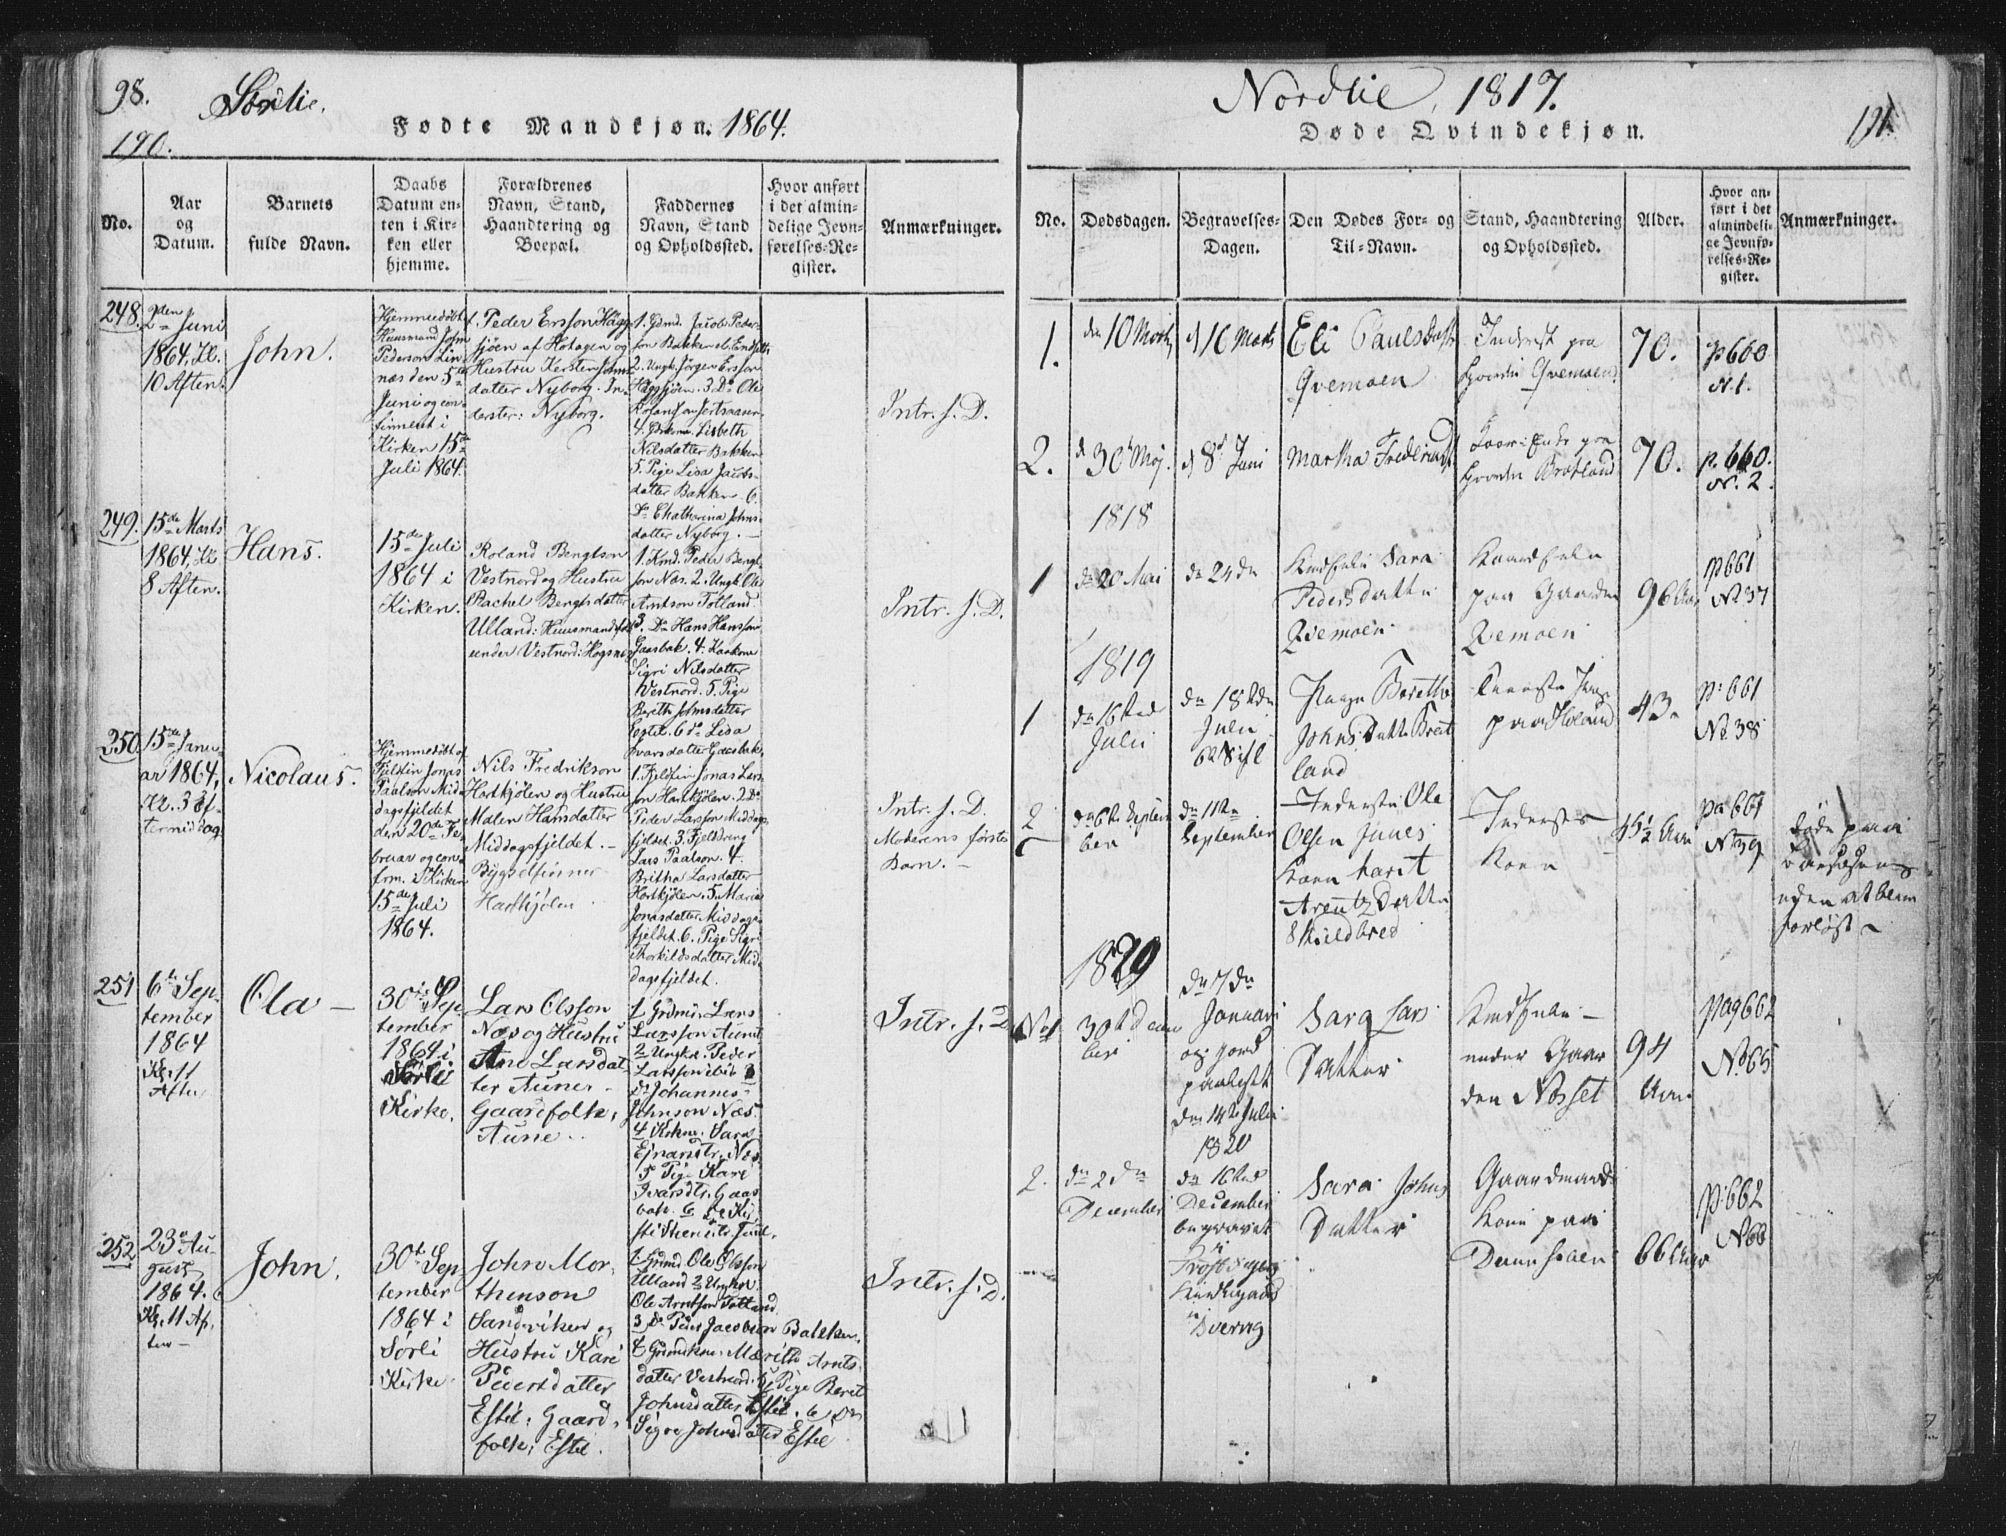 98.
Sørlie.
190.
Fødte Mandkjøn. 1864.
No.
Aar
og
Datum.
Barnets
fulde Navn.
Daabs
Datum en-
ten i Kir-
ken eller
hjemme.
Forældrenes
Navn, Stand,
Haandtering og
Boepæl.
Faddernes
Navn, Stand
og Opholdssted.
Hvor anført
i det almin-
delige Jevn-
førelses-Re-
gister.
Anmærkninger.
248.
2den Juni
1864, Kl.
10 Aften.
John.
Hjemmedøbt
Huusmand John
Pederson Lin-
næs den 5te
Juni og con-
firmeret i
Kirken 15de
Juli 1864.
Peder Ersson Hägg-
sjöen af Hotagen og
Hustru Kersten Johns-
datter Nyborg. In-
derster: Nyborg.
1. Gdmd. Jacob Peder-
son Bakken
2. Ungk. Jörgen Ersson
Häggsjön. 3. Do Ole
4. Lisbeth
Nilsdatter Bakken
5. Pige Lisa Jacobs-
datter Bakken 6.
Do Chatharina Johns-
datter Nyborg.
Intr. s. D.
249.
15de Marts
1864, Kl.
8 Aften.
Hans.
15de Juli
1864 i
Kirken.
Roland Bengtson
Vestnord og Hustru
Rachel Bengtsdatter
Ulland: Huusmandsfolk
under Vestnord: Hogsnes
1. Kmd. Peder Bengt-
son Næs. 2. Ungk. Ole
Arntson Totland.
3. Do Hans Hansson
Gaasbak. 4. Kaakone
Sigri Nilsdatter
Vestnord. 5. Pige
Bereth Johnsdatter
Estel. 6 Do Lisa
Ivarsdatter Gaasbak.
Intr. s. D.
250
15de Janu-
ar 1864,
Kl. 3 Ef-
termiddag
Nicolaus.
Hjemmedøbt af
Fjeldfin Jonas
Paalson Mid-
dagsfjeldet
den 20de Fe-
bruar og con-
frm. i Kirken
15de Juli
1864.
Nils Fredrikson
Hartkjölen og Hustru
Malen Hansdatter
Middagsfjeldet.
Bygselfinner
Hartkjölen
1. Fjeldfin Jonas Lars-
son Hartkjölen. 2. Do
Peder Larsson Middags-
fjeldet. 3. Fjelddreng
Lars Paalson. 4.
Britha Larsdatter
Hartkjölen. 5. Maria
Jonasdatter Middags-
fjeldet. 6. Pige Sigri
Thorkildsdatter Mid-
dagsfjeldet.
Intr. s. D.
Moderens første
Barn.
251
6te Sep-
tember
1864
Kl. 11
Aften
Ola
30te Sep-
tember
1864 i
Sørli
Kirke.
Lars Olsson
Næs og Hustru
Ane Larsdat-
ter Aune
Gaardfolk,
Aune
1. Grdmd. Lars
Larsson Aune
2 Ungkr. Peder
Larsson ibid 3
do Johannes
Johnson Næs
4 Kirkne. Sara
Ejnarsdtr. Næs
5 Pige Kari
Ivarsdtr. Gaas-
bak. 6 do
Intr. s. D.
252
23de Au-
gust
1864.
Kl. 11 Af-
ten
John.
30te Sep-
tember
1864 i
Sørli
Kirke
John Mor-
thenson
Sandviken og
Hustru Kari
Peersdatter
Estil: Gaard-
folk, Estil.
1. Grdmd. Ole Olsson
Ulland 2 Ungkr.
Ole Arntson Totland
3 do Peder Jacobson Bakken.
4 Grdmdkne. Mærith Arnts-
datter Vestnord. 5 Pige Beret
Johnsdatter Estil. 6 do
Sigri Johnsdatter Estil
Intr. s. D.
Nordlie, 1817.
Døde Qvindekjøn.
191.
No.
Dødsdagen.
Begravelses-
Dagen.
Den Dødes For- og
Til-Navn.
Stand, Haandtering
og Opholdssted.
Alder.
Hvor an-
ført i det
almindeli-
ge Jevnfø-
relses-Re-
gister.
Anmærkninger.
1.
den 10 Marts
d 16 Marts
Eli Paulsdatr
Qvemoen
Inderst paa
Gaarden Qvemoen
70.
p 660
N. 1.
2.
d 30 Maj.
d 8de Juni
Martha Fredriksdt
paa
Gaarden Brotland
70.
p. 660.
N. 2.
1818
1
den 20 Mai
den 24de
Sara
Pedersdatter
Qvemoen
paa Gaarden
Qvemoen
96 Aar
p 661
No 37
1819
1
den 16tende
Julii
den 18tende
Julii
Berethe
Johns Datter Brat-
land
43
p: 661
No 38
2
den 6te Septem-
ber
den 11te
September
Inderste Ole
Olsen
Kone Marit
Arentz Datter
Skieldbred
Inderstes
Kone
45½ Aar
pa 661
No 39
døde paa
Barselseng
uden at blive
forløst
1820
No 1
den 17de
Januari
og Jord
paakastet
den 14de Julii
1820
Sara Lars
Datter
under Gaar-
den Nosset
94
Aar
pag 662
No 65
2.
den 2den
December
den 16tende
December
begravet
i
Frostvigens
Kirkegaard
i Sverrig
Sara Johns
Datter
Gaardmands
Kone paa
66 Aar
p: 662
No 66